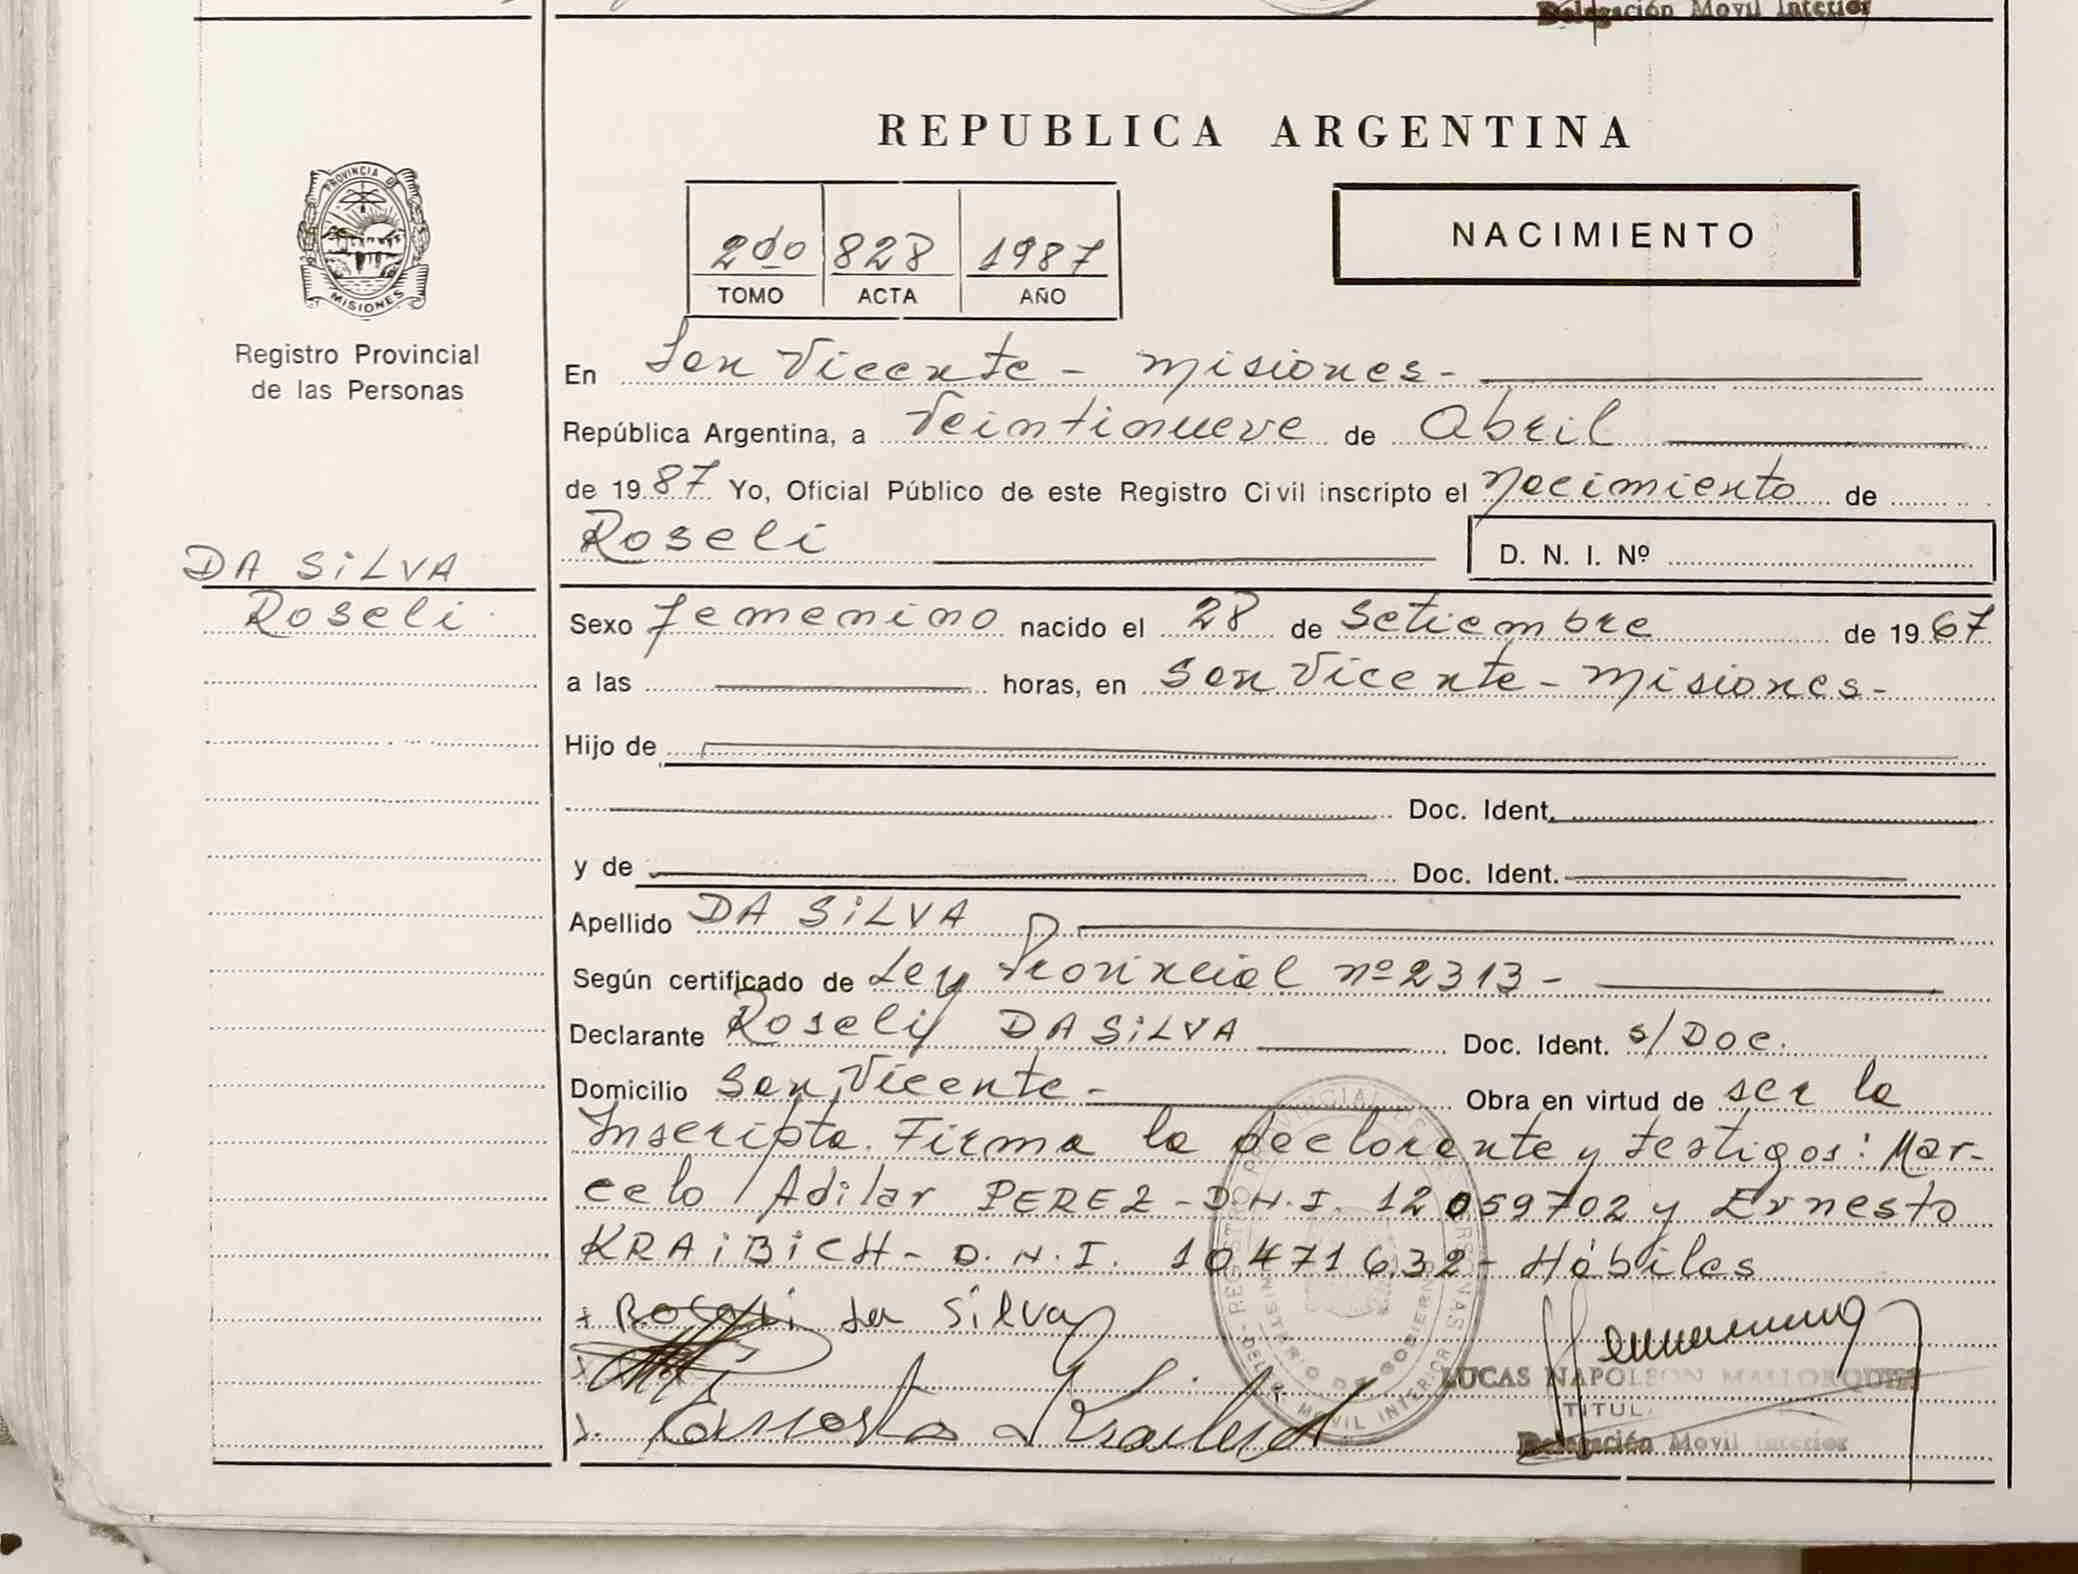 Delegación Movil Interior
REPUBLICA ARGENTINA
PROVINCIA DE
MISIONES
Registro Provincial
de las Personas
DA SiLVA
Roseli
2do 828 1987
TOMO ACTA AÑO
NACIMIENTO
En San Vicente - Misiones -
República Argentina, a Veintinueve de Abril
de 1987 Yo, Oficial Público de este Registro Civil inscripto el Nacimiento de
Roseli D. N. I. Nº
Sexo femenino nacido el 28 de Setiembre de 1967
a las horas, en San Vicente - Misiones -
Hijo de
Doc. Ident.
y de Doc. Ident.
Apellido DA SiLVA
Según certificado de Ley Provincial nº 2313 -
Declarante Roseli DA SiLVA Doc. Ident. s/Doc.
Domicilio San Vicente - Obra en virtud de ser la
Inscripta. Firma la declarante y testigos: Mar-
celo Adilar PEREZ - D.N.I. 12059702 y Ernesto
KRAiBiCH - D.N.I. 10471632 - Hábiles
+ Roseli da Silva
LUCAS NAPOLEON MALLORQUIN
TITULAR
Delegación Movil Interior